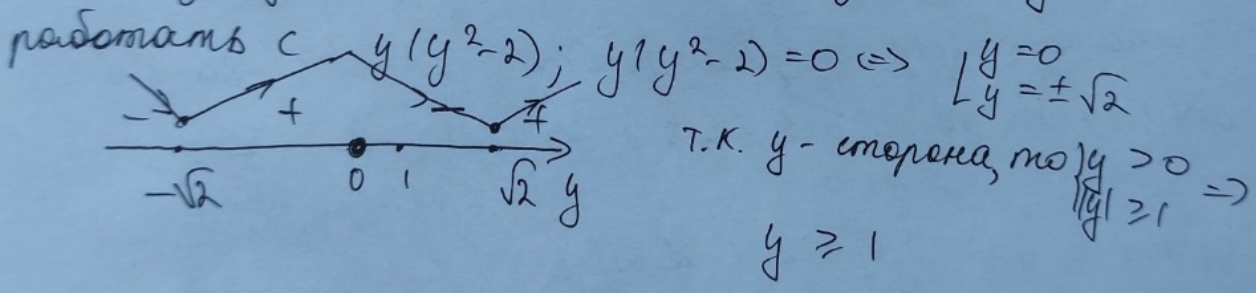 работать с y(y²-2); y(y²-2)=0 <=> [ y=0
y=±√2
- + - +
-√2 0 1 √2 y
т.к. y - сторона, то { y > 0
|y| ≥ 1 =>
y ≥ 1